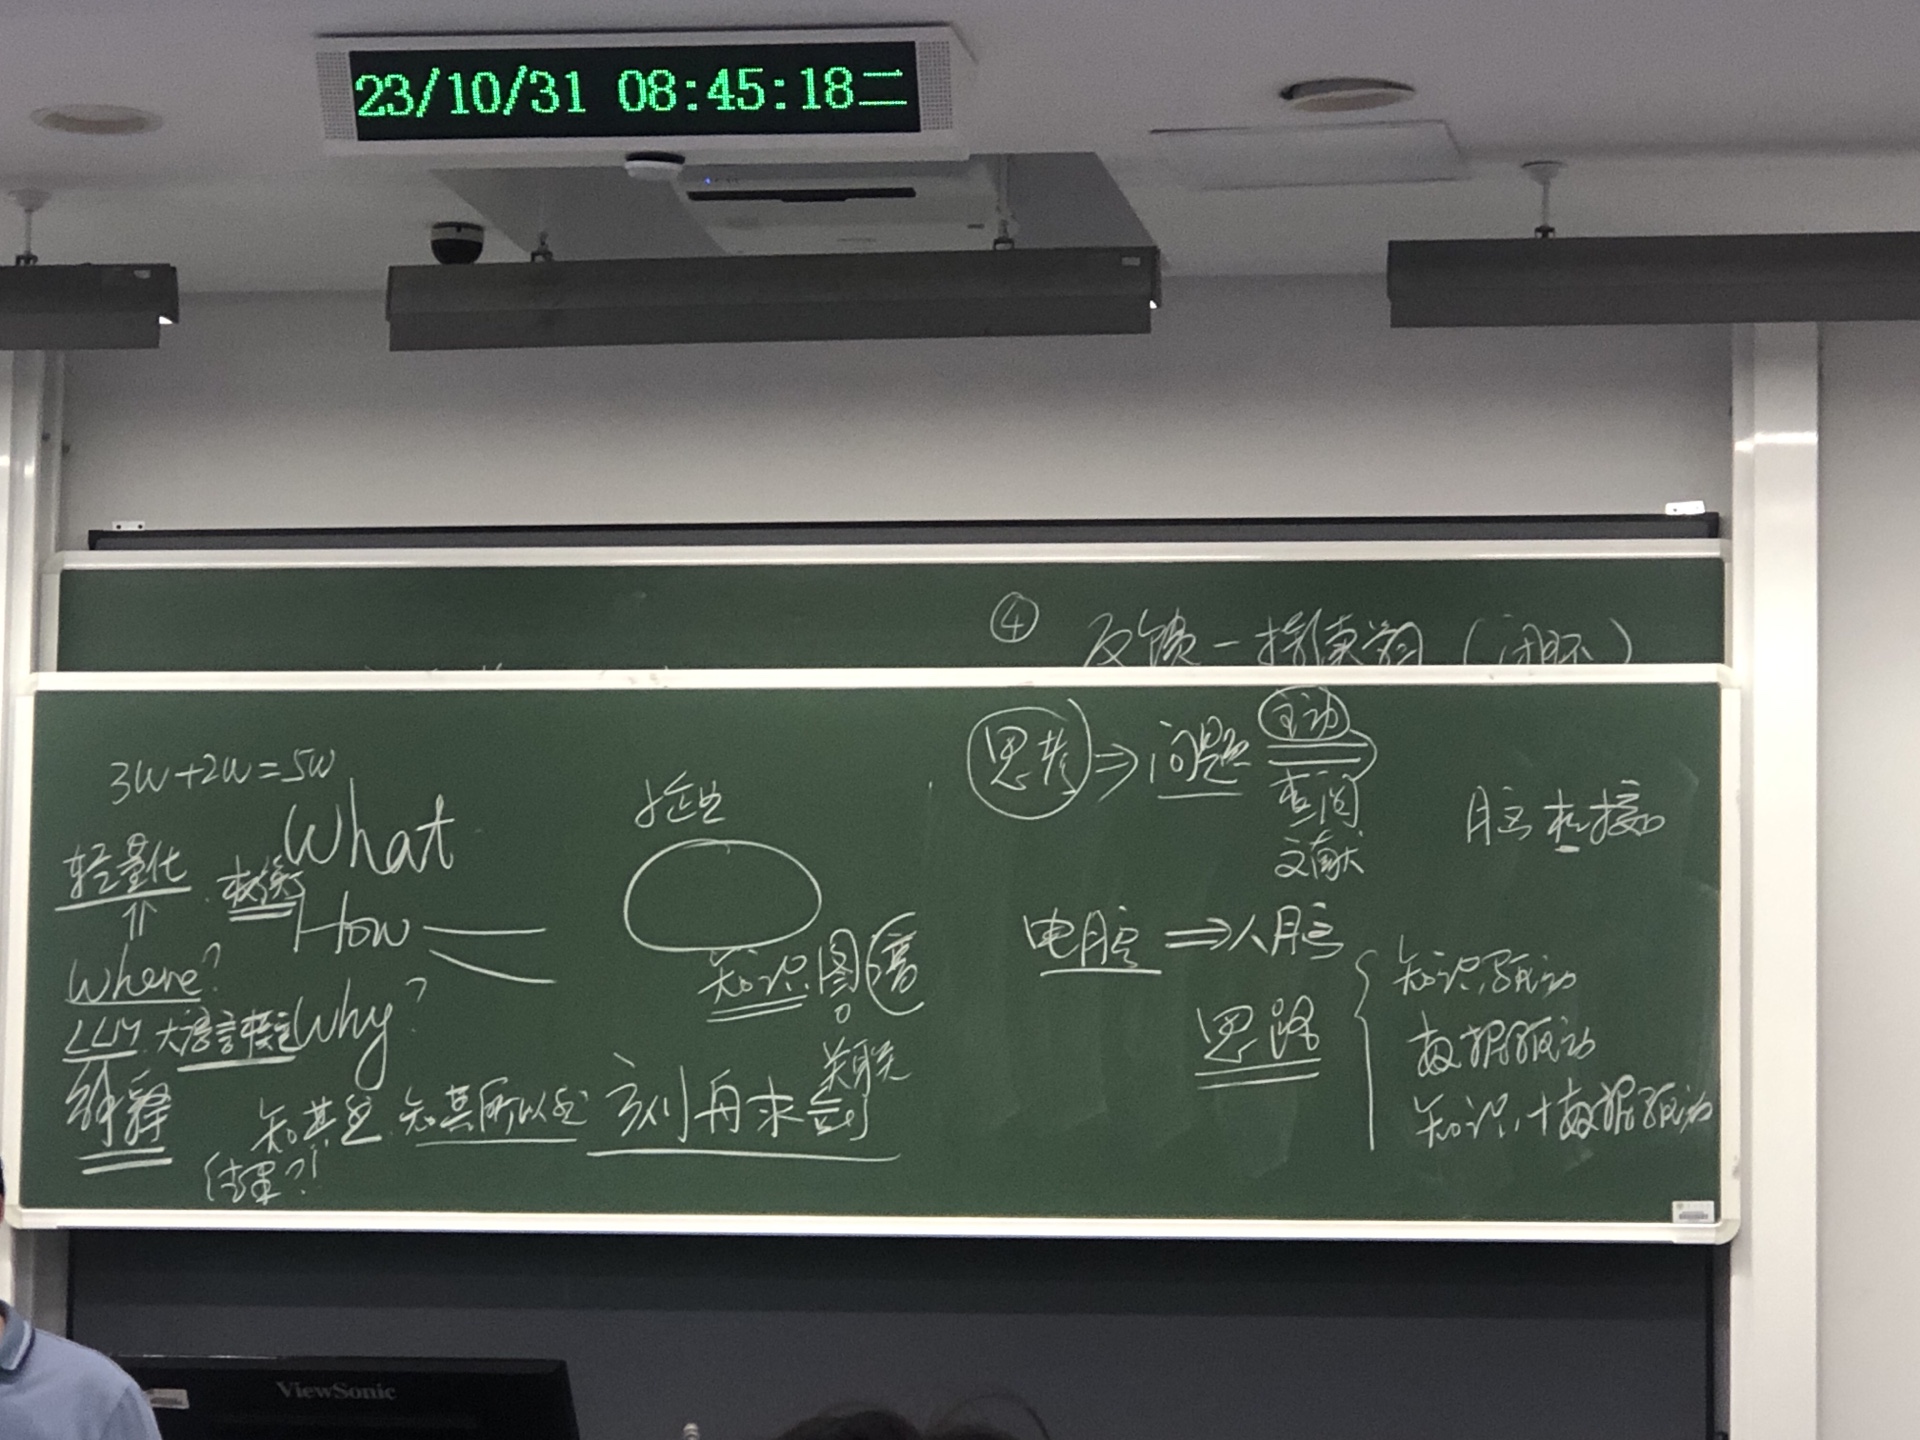 23/10/31 08:45:18二
④ 反馈一探索沟(闭环)
3W+2W=5W
What
轻量化
权衡
How
Where?
Why?
LLM 大语言模型
解释
知其然 知其所以然
结果?!
知识图
关联
思考⇒问题
主动
查阅
文献
脑机接口
电脑⇒人脑
思路
知识驱动
数据驱动
知识+数据驱动
ViewSonic